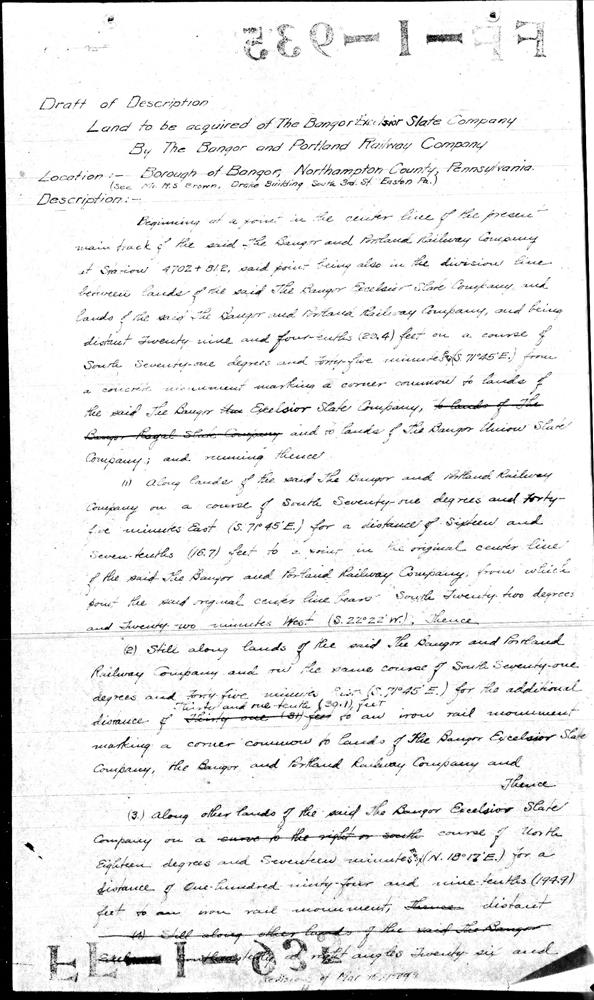 EE-1-935
Draft of Description
Land to be acquired of The Bangor Excelsior Slate Company
By The Bangor and Portland Railway Company
Location:- Borough of Bangor, Northampton County, Pennsylvania.
(See Mr. H.S. Brown, Drake Building South 3rd. St. Easton Pa.)
Description:-
Beginning at a point in the center line of the present
main track of the said The Bangor and Portland Railway Company
at Station 4702+812, said point being also in the division line
between lands of the said The Bangor Excelsior Slate Company and
lands of the said The Bangor and Portland Railway Company, and being
distant Twenty nine and four-tenths (29.4) feet on a course of
South Seventy-one degrees and forty-five minutes (S. 71°45'E.) from
a concrete monument marking a corner common to lands of
the said The Bangor Excelsior Slate Company, to lands of The
Bangor Royal Slate Company and to lands of The Bangor Union Slate
Company; and running thence
(1) Along lands of the said The Bangor and Portland Railway
Company on a course of South Seventy-one degrees and forty-
five minutes East (S. 71°45'E.) for a distance of Sixteen and
Seven-tenths (16.7) feet to a point in the original center line
of the said The Bangor and Portland Railway Company, from which
point the said original center line bears South Twenty-two degrees
and Twenty-two minutes West (S. 22°22'W.); Thence
(2) Still along lands of the said The Bangor and Portland
Railway Company and on the same course of South Seventy-one
degrees and forty five minutes East (S. 71°45'E.) for the additional
Thirty and one tenth (30.1) feet
distance of Thirty one (31) feet to an iron rail monument
marking a corner common to lands of The Bangor Excelsior Slate
Company, the Bangor and Portland Railway Company and
Thence
(3.) Along other lands of the said The Bangor Excelsior Slate
Company on a curve to the right or south course of North
Eighteen degrees and Seventeen minutes (N. 18°17'E.) for a
distance of One-hundred ninety-four and nine-tenths (194.9)
feet to an iron rail monument, Thence distant
(4) Still along other lands of the said The Bangor
at right angles Twenty-six and
EE-1-935